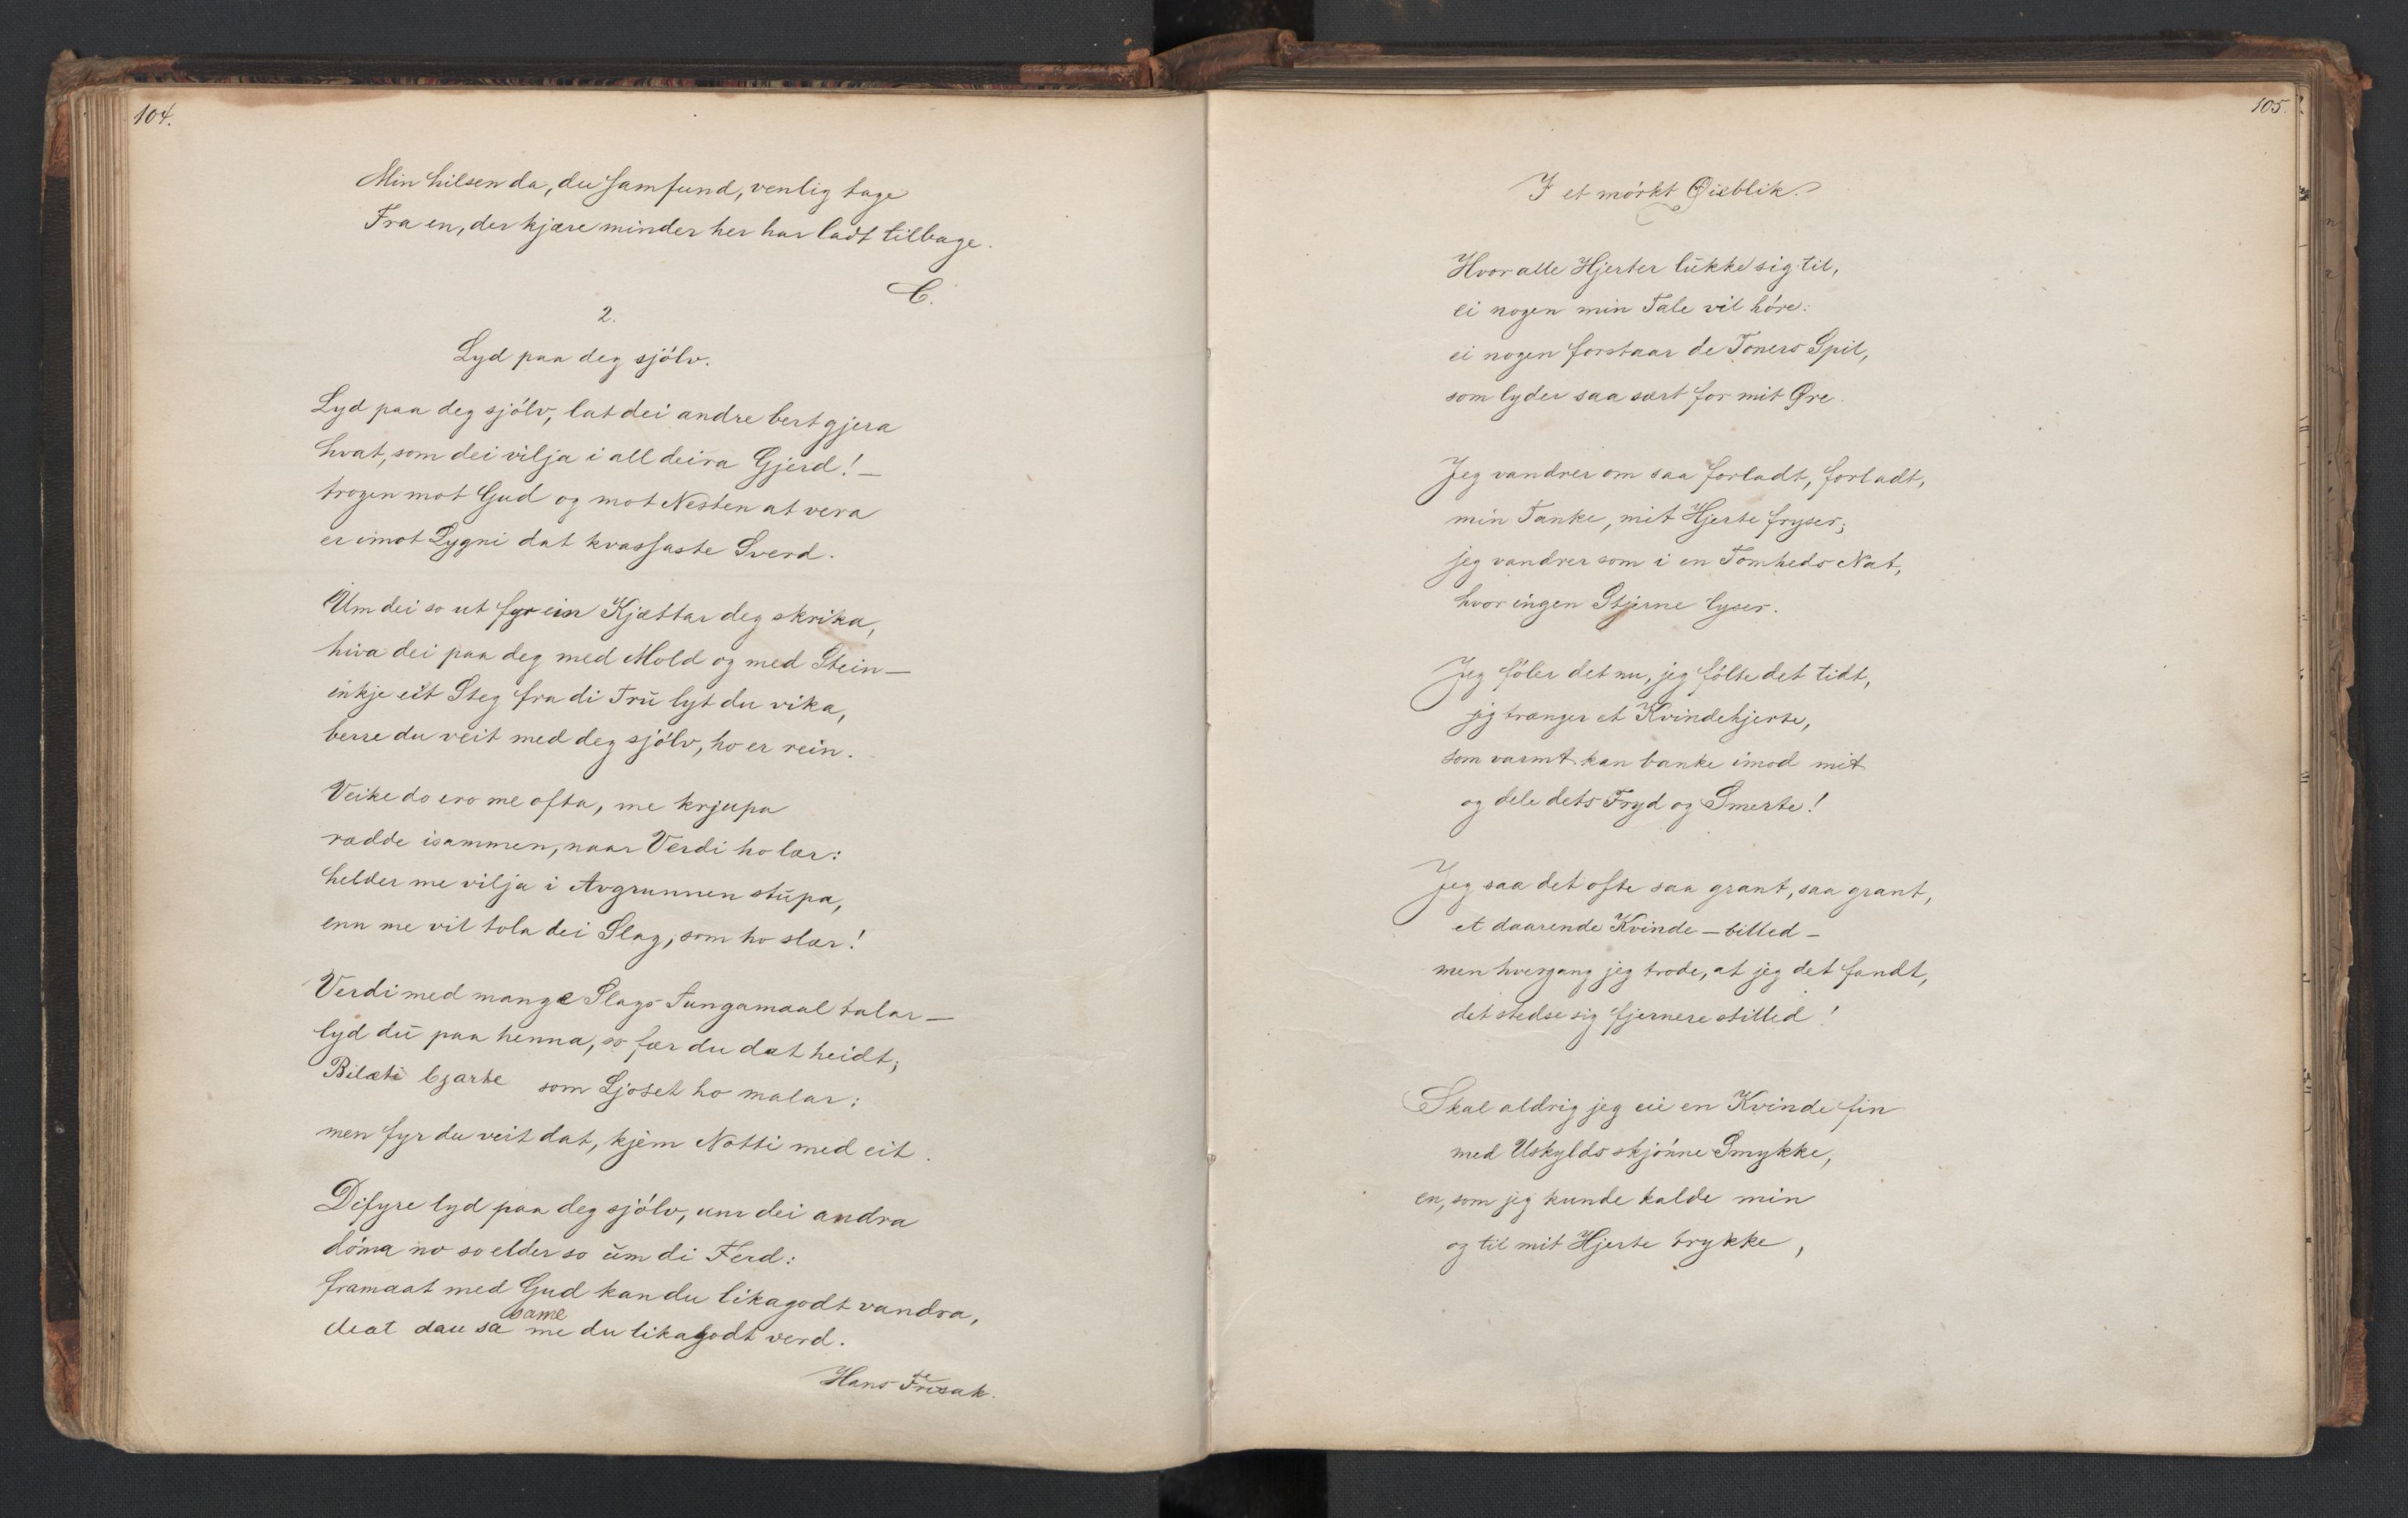 104.
Min hilsen da, du samfund, venlig tage
Fra en, der kjære minder her har ladt tilbage.
C.
2.
Lyd paa deg sjólv.
Lyd paa deg sjólv, lat dei andre bert gjera
hvat, som dei vilja i all deira Gjerd! —
trogen mot Gud og mot Nesten at vera
er imot Lygni dat kvassaste Sverd.
Um dei so ut fyr ein Kjættar deg skrika,
hiva dei paa deg med Mold og med Stein —
inkje eit Steg fra di Trū lyt du vika,
berre du veit med deg sjólv, ho er rein.
Veike do ero me ofta, me krjupa
rædde isammen, naar Verdi ho lær:
helder me vilja i Avgrunnen stūpa,
enn me vil tola dei Slag, som ho slær!
Verdi med mange Slags Tungamaal talar —
lyd dū paa henna, so fær du dat heidt;
Bilæti bjarte som Ljoset ho malar:
men fyr du veit dat, kjèm Notti med eit.
Difyre lyd paa deg sjólv, um dei andra
dóma no so elder so ūm di Ferd:
framaat med Gud kan du likagodt vandra,
same
me du likagodt verd.
Hans
105.
I et mórkt Øieblik.
Hvor alle Hjerter lūkke sig til,
ei nogen min Tale vil hóre:
ei nogen forstaar de Toners Spil,
som lyder saa sært for mit Øre.
Jeg vandrer om saa forladt, forladt,
min Tanke, mit Hjerte fryser;
jeg vandrer som i en Tomheds Nat,
hvor ingen Stjerne lyser.
Jeg fóler det nu, jeg fólte det tidt,
jeg trænger et Kvindehjerte,
som varmt kan banke imod mit
og dele dets Fryd og Smerte!
Jeg saa det ofte saa grant, saa grant,
et daarende Kvinde — billed —
men hvergang jeg trode, at jeg det fandt,
det stedse sig fjernere stilled!
Skal aldrig jeg eie en Kvinde fin
med Uskylds skjónne Smykke,
en, som jeg kunde kalde min
og til mit Hjerte trykke,